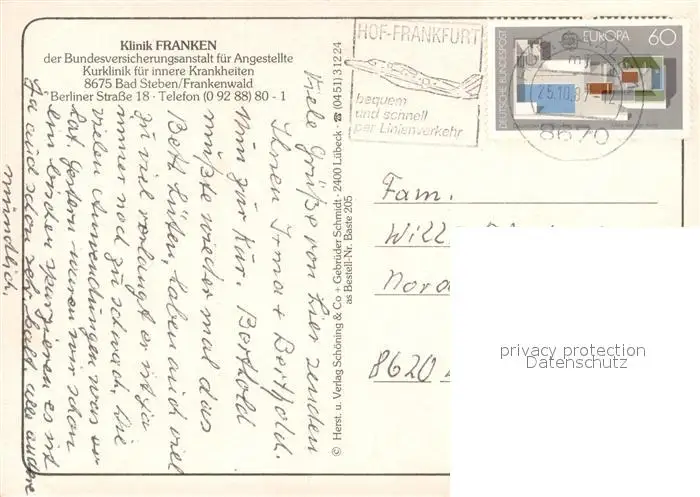 Klinik FRANKEN
der Bundesversicherungsanstalt für Angestellte
Kurklinik für innere Krankheiten
8675 Bad Steben/Frankenwald
Berliner Straße 18 · Telefon (0 92 88) 80 - 1
Viele Grüße von hier senden
Ihnen Irma + Berthold.
Nun zur Kur. Berthold
mußte wieder mal das
Bett hüten, haben auch viel
zu viel verlangt er ist ja
immer noch zu schwach. Die
vielen Anwendungen was er
hat. Gestern waren wir schon
ein bischen spazieren es ist
ja auch schon sehr kalt alles andere
mündlich.
© Herst. u. Verlag Schöning & Co + Gebrüder Schmidt · 2400 Lübeck · ☎ (04 51) 3 12 24
as Bestell-Nr. Baste 205
HOF-FRANKFURT
bequem
und schnell
per Linienverkehr
DEUTSCHE BUNDESPOST
EUROPA
60
25.10.87
8670
Fam.
Will
Nord
8620
privacy protection
Datenschutz